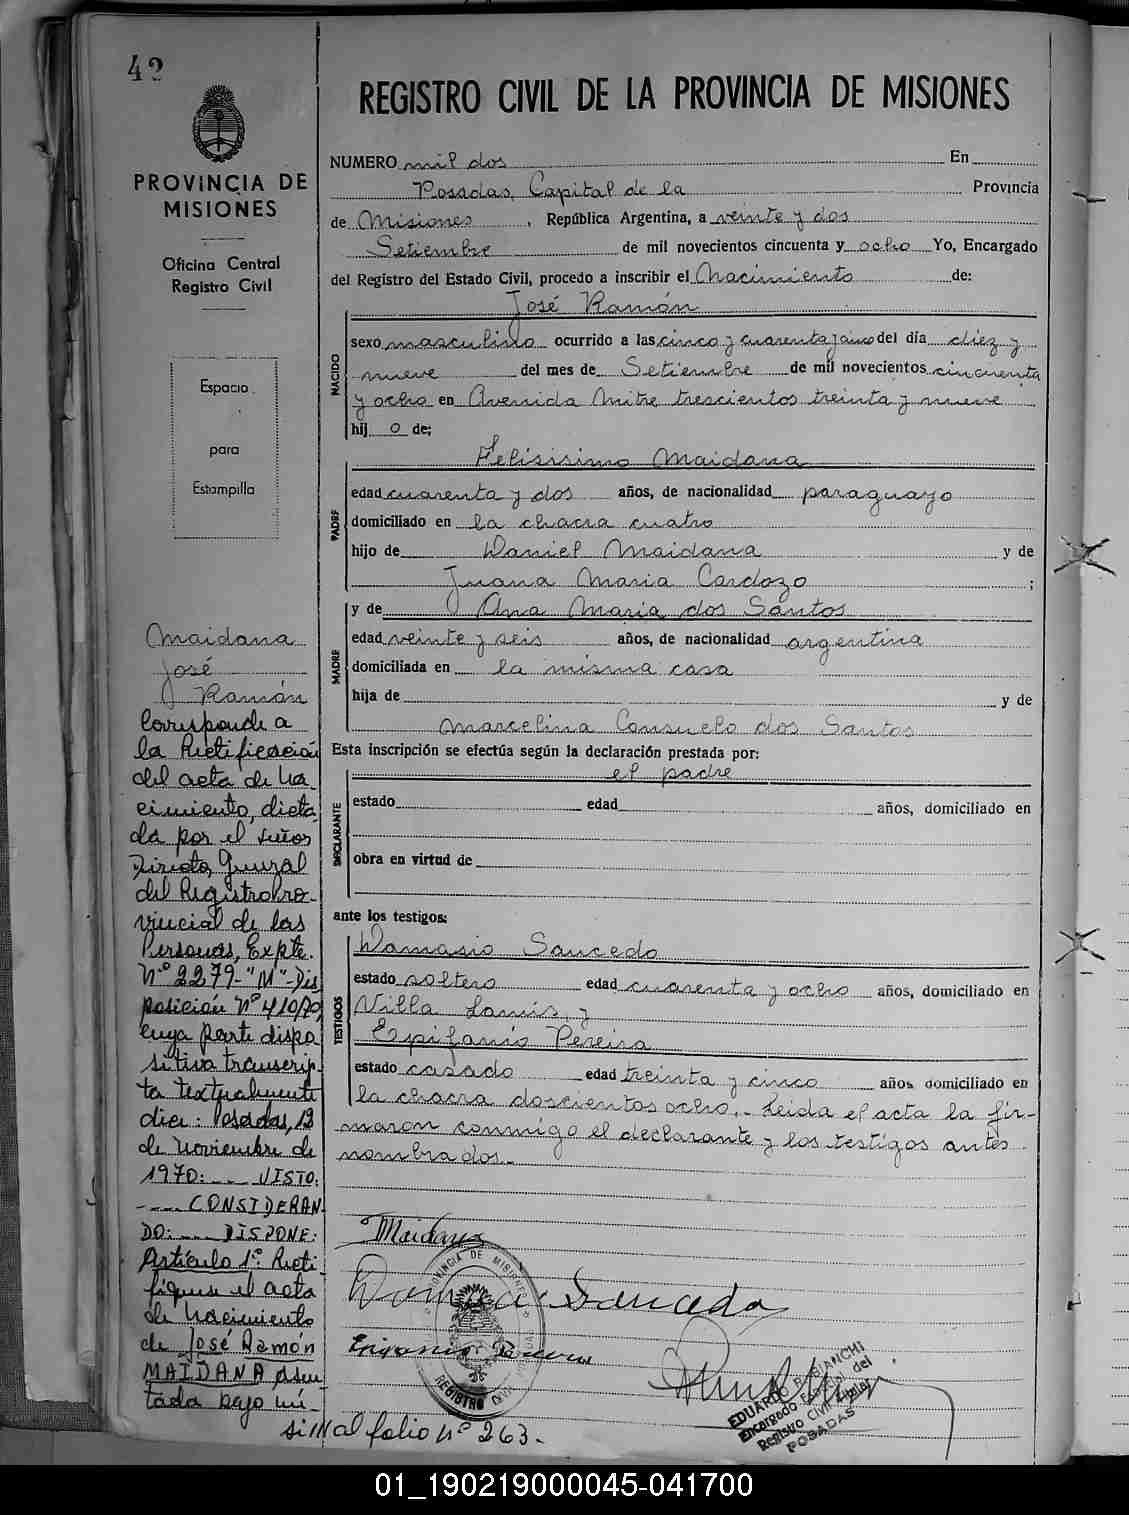 42
PROVINCIA DE
MISIONES
Oficina Central
Registro Civil
Espacio
para
Estampilla
Maidana
José
Ramón
Corresponde a
la Rectificación
del acta de Na-
cimiento, dicta-
da por el señor
Director General
del Registro Pro-
vincial de las
Personas, Expte.
Nº 2279-"M"-Dis
posición Nº 410/70,
cuya parte dispo
sitiva transcrip-
ta textualmente
dice: Posadas, 19
de Noviembre de
1970: ... VISTO:
.... CONSIDERAN
DO: .... DISPONE:
Artículo 1º: Recti
fíquese el acta
de Nacimiento
de José Ramón
MAIDANA asen
tada bajo nú-
al folio Nº 263.-
REGISTRO CIVIL DE LA PROVINCIA DE MISIONES
NUMERO mil dos En
Posadas, Capital de la Provincia
de Misiones, República Argentina, a veinte y dos
Setiembre de mil novecientos cincuenta y ocho Yo, Encargado
del Registro del Estado Civil, procedo a inscribir el Nacimiento de:
José Ramón
NACIDO
sexo masculino ocurrido a las cinco y cuarenta y cinco del día diez y
nueve del mes de Setiembre de mil novecientos cincuenta
y ocho en Avenida Mitre trescientos treinta y nueve
hij o de;
Felisisimo Maidana
PADRE
edad cuarenta y dos años, de nacionalidad paraguayo
domiciliado en la chacra cuatro
hijo de Daniel Maidana y de
Juana Maria Cardozo ;
y de Ana Maria dos Santos
MADRE
edad veinte y seis años, de nacionalidad argentina
domiciliada en la misma casa
hija de y de
Marcelina Consuelo dos Santos
Esta inscripción se efectúa según la declaración prestada por:
el padre
DECLARANTE
estado edad años, domiciliado en
obra en virtud de
ante los testigos:
Damasio Saucedo
TESTIGOS
estado soltero edad cuarenta y ocho años, domiciliado en
Villa Lanús, y
Epifanio Pereira
estado casado edad treinta y cinco años domiciliado en
la chacra doscientos ocho.- Leida el acta la fir-
maron conmigo el declarante y los testigos antes
nombrados.-
Maidana
Saucedo
PROVINCIA DE MISIONES
REGISTRO CIVIL
EDUARDO R. BIANCHI
Encargado Especial del
Registro Civil Capital
POSADAS
01_190219000045-041700